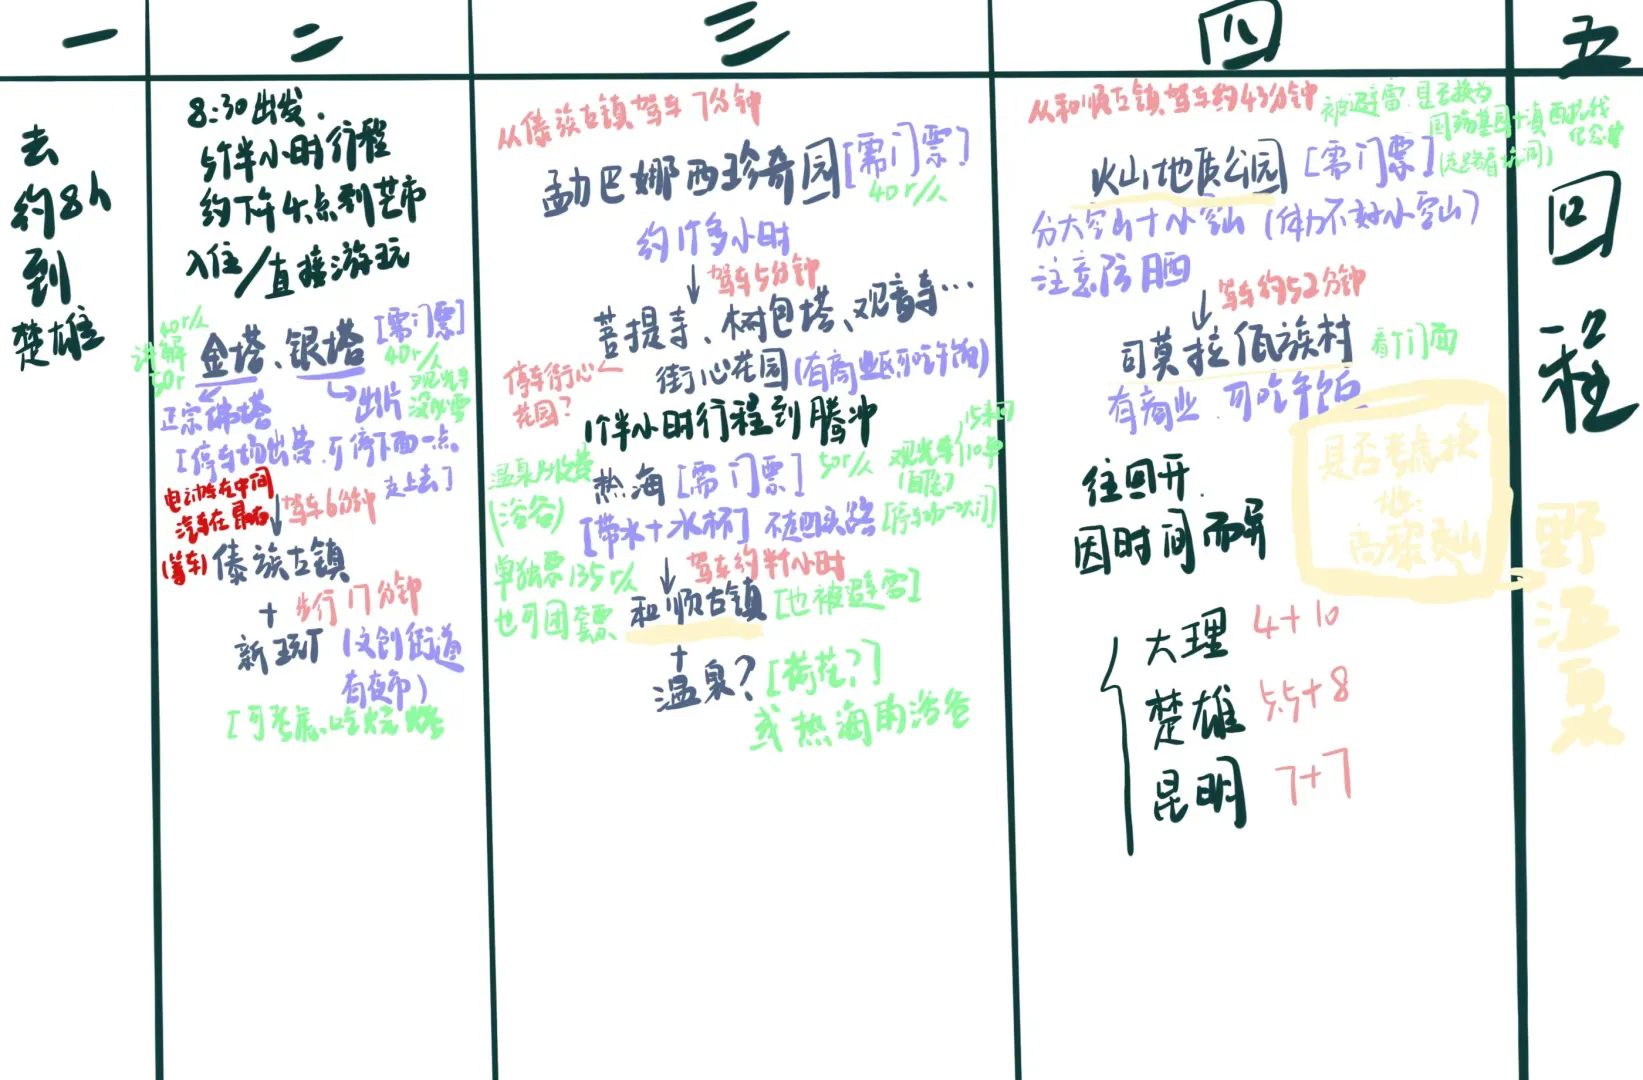 一
二
三
四
五
去
约8h
到
楚雄
8:30出发.
5个半小时行程
约下午4点到芒市
入住/直接游玩
40r/人
讲解
50r
金塔、银塔
[需门票]
40r/人
观光车
没必要
正宗佛塔
出片
[停车场出费,可停下面一点
走上去]
电动车在中间
汽车在最右
(着车)
驾车6分钟
傣族古镇
+
步行17分钟
新玩厂
(文创街道
有夜市)
[可考虑吃烧烤
从傣族古镇驾车7分钟
勐巴娜西珍奇园
[需门票]
40r/人
约1个多小时
驾车5分钟
菩提寺、树包塔、观音寺…
停车街心
花园?
街心花园(有商业区可吃午饭)
1个半小时行程到腾冲
温泉另收费
(浴谷)
热海[需门票]
50r/人
观光车
15来回
10单
(自愿)
[带水+水杯]
不走回头路
单独票135r/人
也可团套票
驾车约半小时
和顺古镇
[也被避雷]
+
温泉?
[荷花?]
或热海的浴谷
从和顺古镇驾车约43分钟
被避雷.是否换为
国殇墓园+滇西抗战
纪念馆
火山地质公园
[需门票]
分大空山+小空山(体力不好小空山)
注意防晒
驾车约52分钟
司莫拉佤族村
有商业.可吃午饭
是否考虑换
地:
高黎贡山
往回开.
因时间而异
大理 4+10
楚雄 5.5+8
昆明 7+7
回
程
野
温
泉